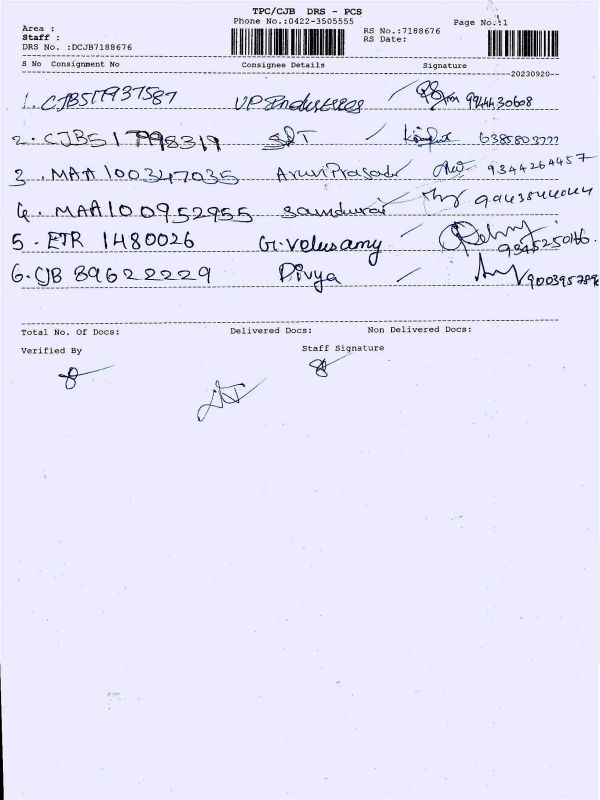 TPC/CJB DRS - PCS
Area : Phone No.:0422-3505555 Page No.:1
Staff : RS No.:7188676
DRS No. :DCJB7188676 RS Date:
S No Consignment No Consignee Details Signature
20230920
1. CJB517937587 VP Industries 9944430608
2. CJB517798319 SDT 6385803777
3. MAA100347035 ArunPrasad 9344264457
4. MAA100952955 Samdurai
5. ETR 1480026 G. Velusamy
6. CJB 89622229 Divya
Total No. Of Docs: Delivered Docs: Non Delivered Docs:
Verified By Staff Signature